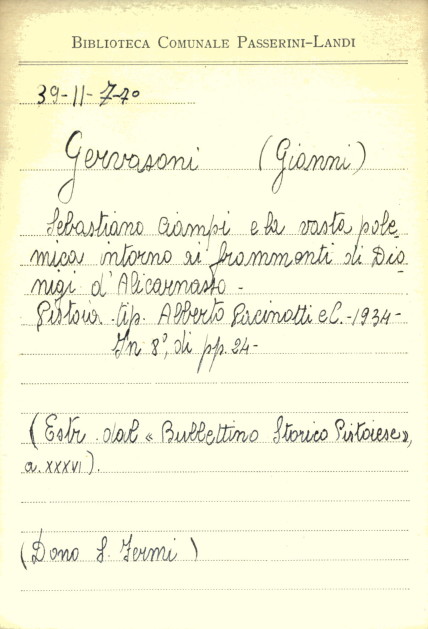 BIBLIOTECA COMUNALE PASSERINI-LANDI
39-11-7-40
Gervasoni (Gianni)
Sebastiano Ciampi e la vasta pole-
mica intorno ai frammenti di Dio-
nigi d'Alicarnasso -
Pistoia. tip. Alberto Pacinotti e C. - 1934 -
In 8°, di pp. 24 -
(Estr. dal « Bullettino Storico Pistoiese»,
a. XXXVI).
(Dono S. Fermi)